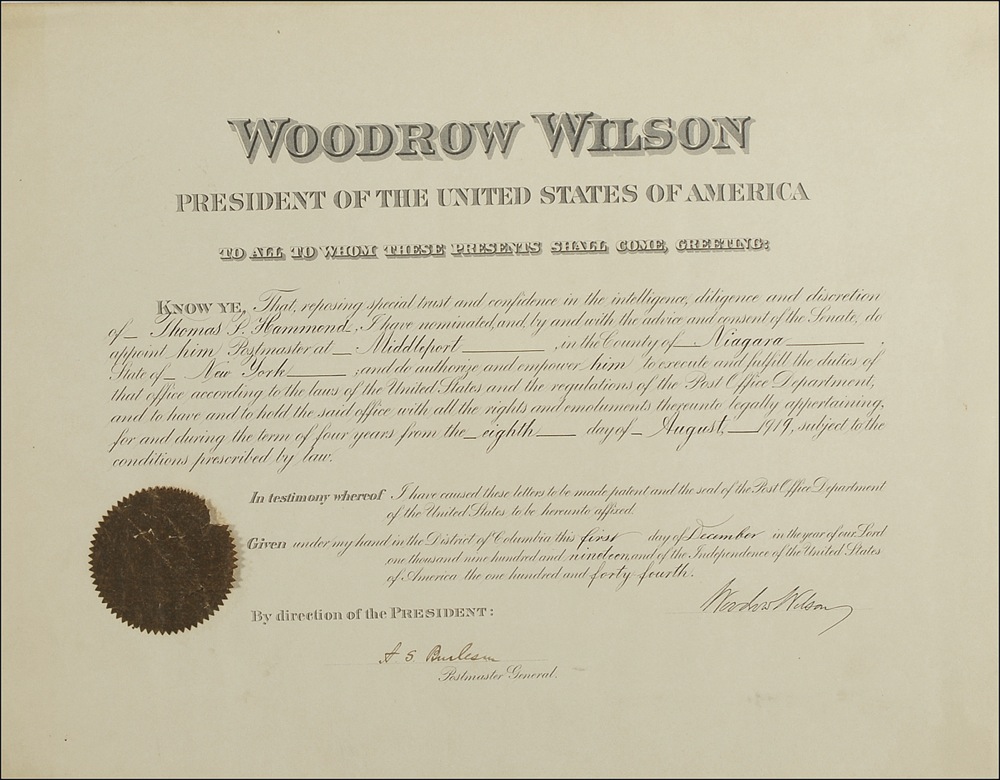 WOODROW WILSON
PRESIDENT OF THE UNITED STATES OF AMERICA
TO ALL TO WHOM THESE PRESENTS SHALL COME, GREETING:
KNOW YE, That, reposing special trust and confidence in the intelligence, diligence and discretion
of Thomas P. Hammond, I have nominated, and, by and with the advice and consent of the Senate, do
appoint him Postmaster at Middleport, in the County of Niagara,
State of New York; and do authorize and empower him to execute and fulfill the duties of
that office according to the laws of the United States and the regulations of the Post Office Department,
and to have and to hold the said office with all the rights and emoluments thereunto legally appertaining,
for and during the term of four years from the eighth day of August, 1919, subject to the
conditions prescribed by law.
In testimony whereof I have caused these letters to be made patent and the seal of the Post Office Department
of the United States to be hereunto affixed.
Given under my hand in the District of Columbia this first day of December in the year of our Lord
one thousand nine hundred and nineteen, and of the Independence of the United States
of America the one hundred and forty fourth.
By direction of the PRESIDENT:
Woodrow Wilson
A S Burleson
Postmaster General.